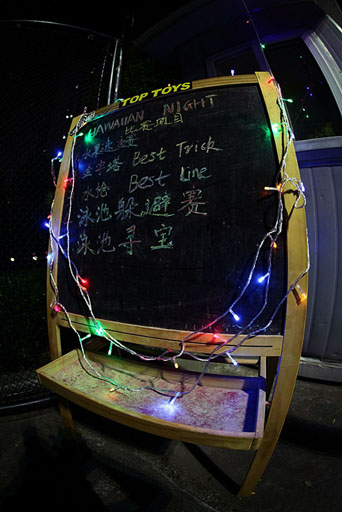 TOP TOYS
HAWAIIAN NIGHT
比赛项目
金字塔 Best Trick
水怪 Best Line
泳池躲避赛
泳池寻宝